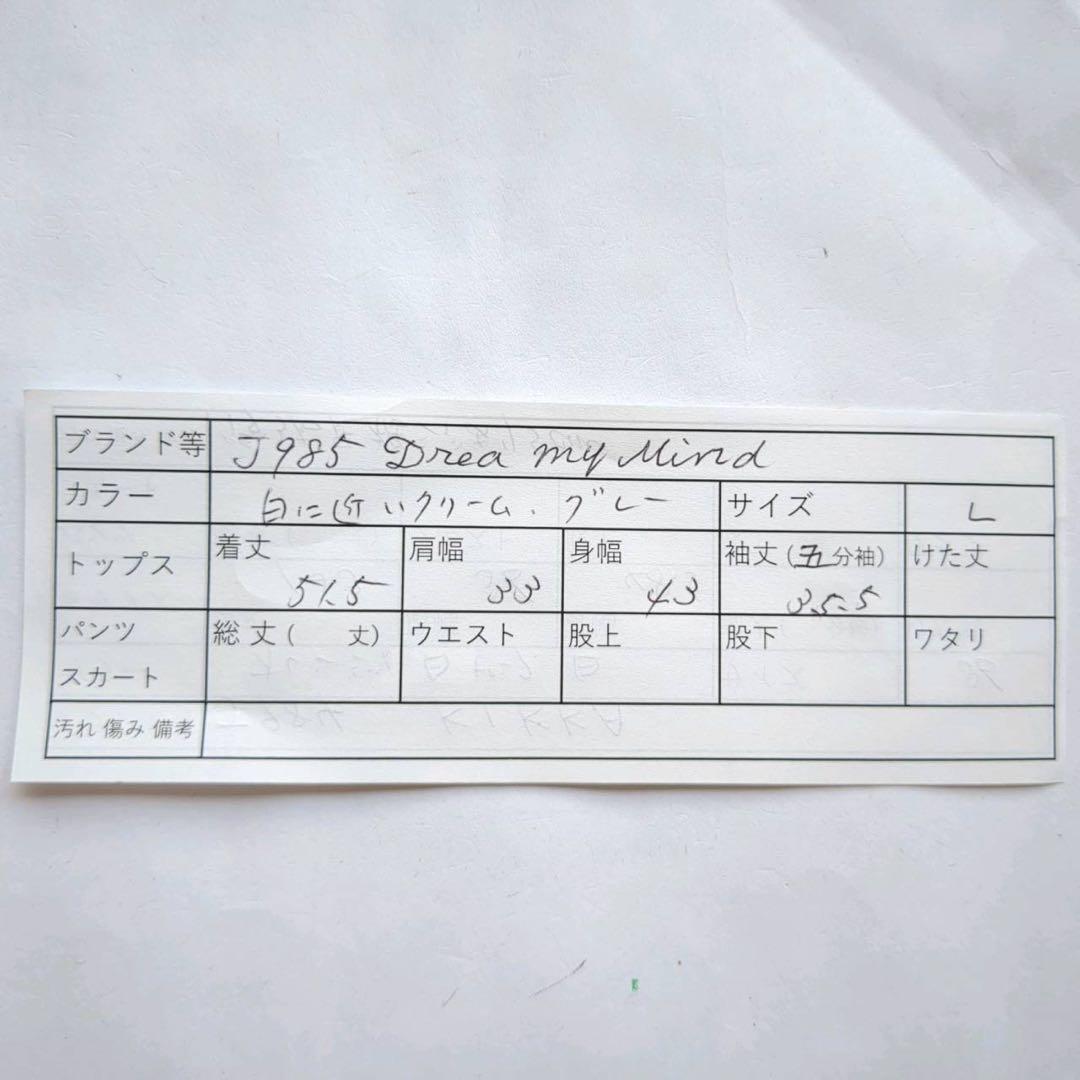 ブランド等 J985 Drea my Mind
カラー 白に近いクリーム、グレー サイズ L
トップス 着丈 51.5 肩幅 33 身幅 43 袖丈(五分袖) 35.5 けた丈
パンツ スカート 総丈( 丈) ウエスト 股上 股下 ワタリ
汚れ 傷み 備考